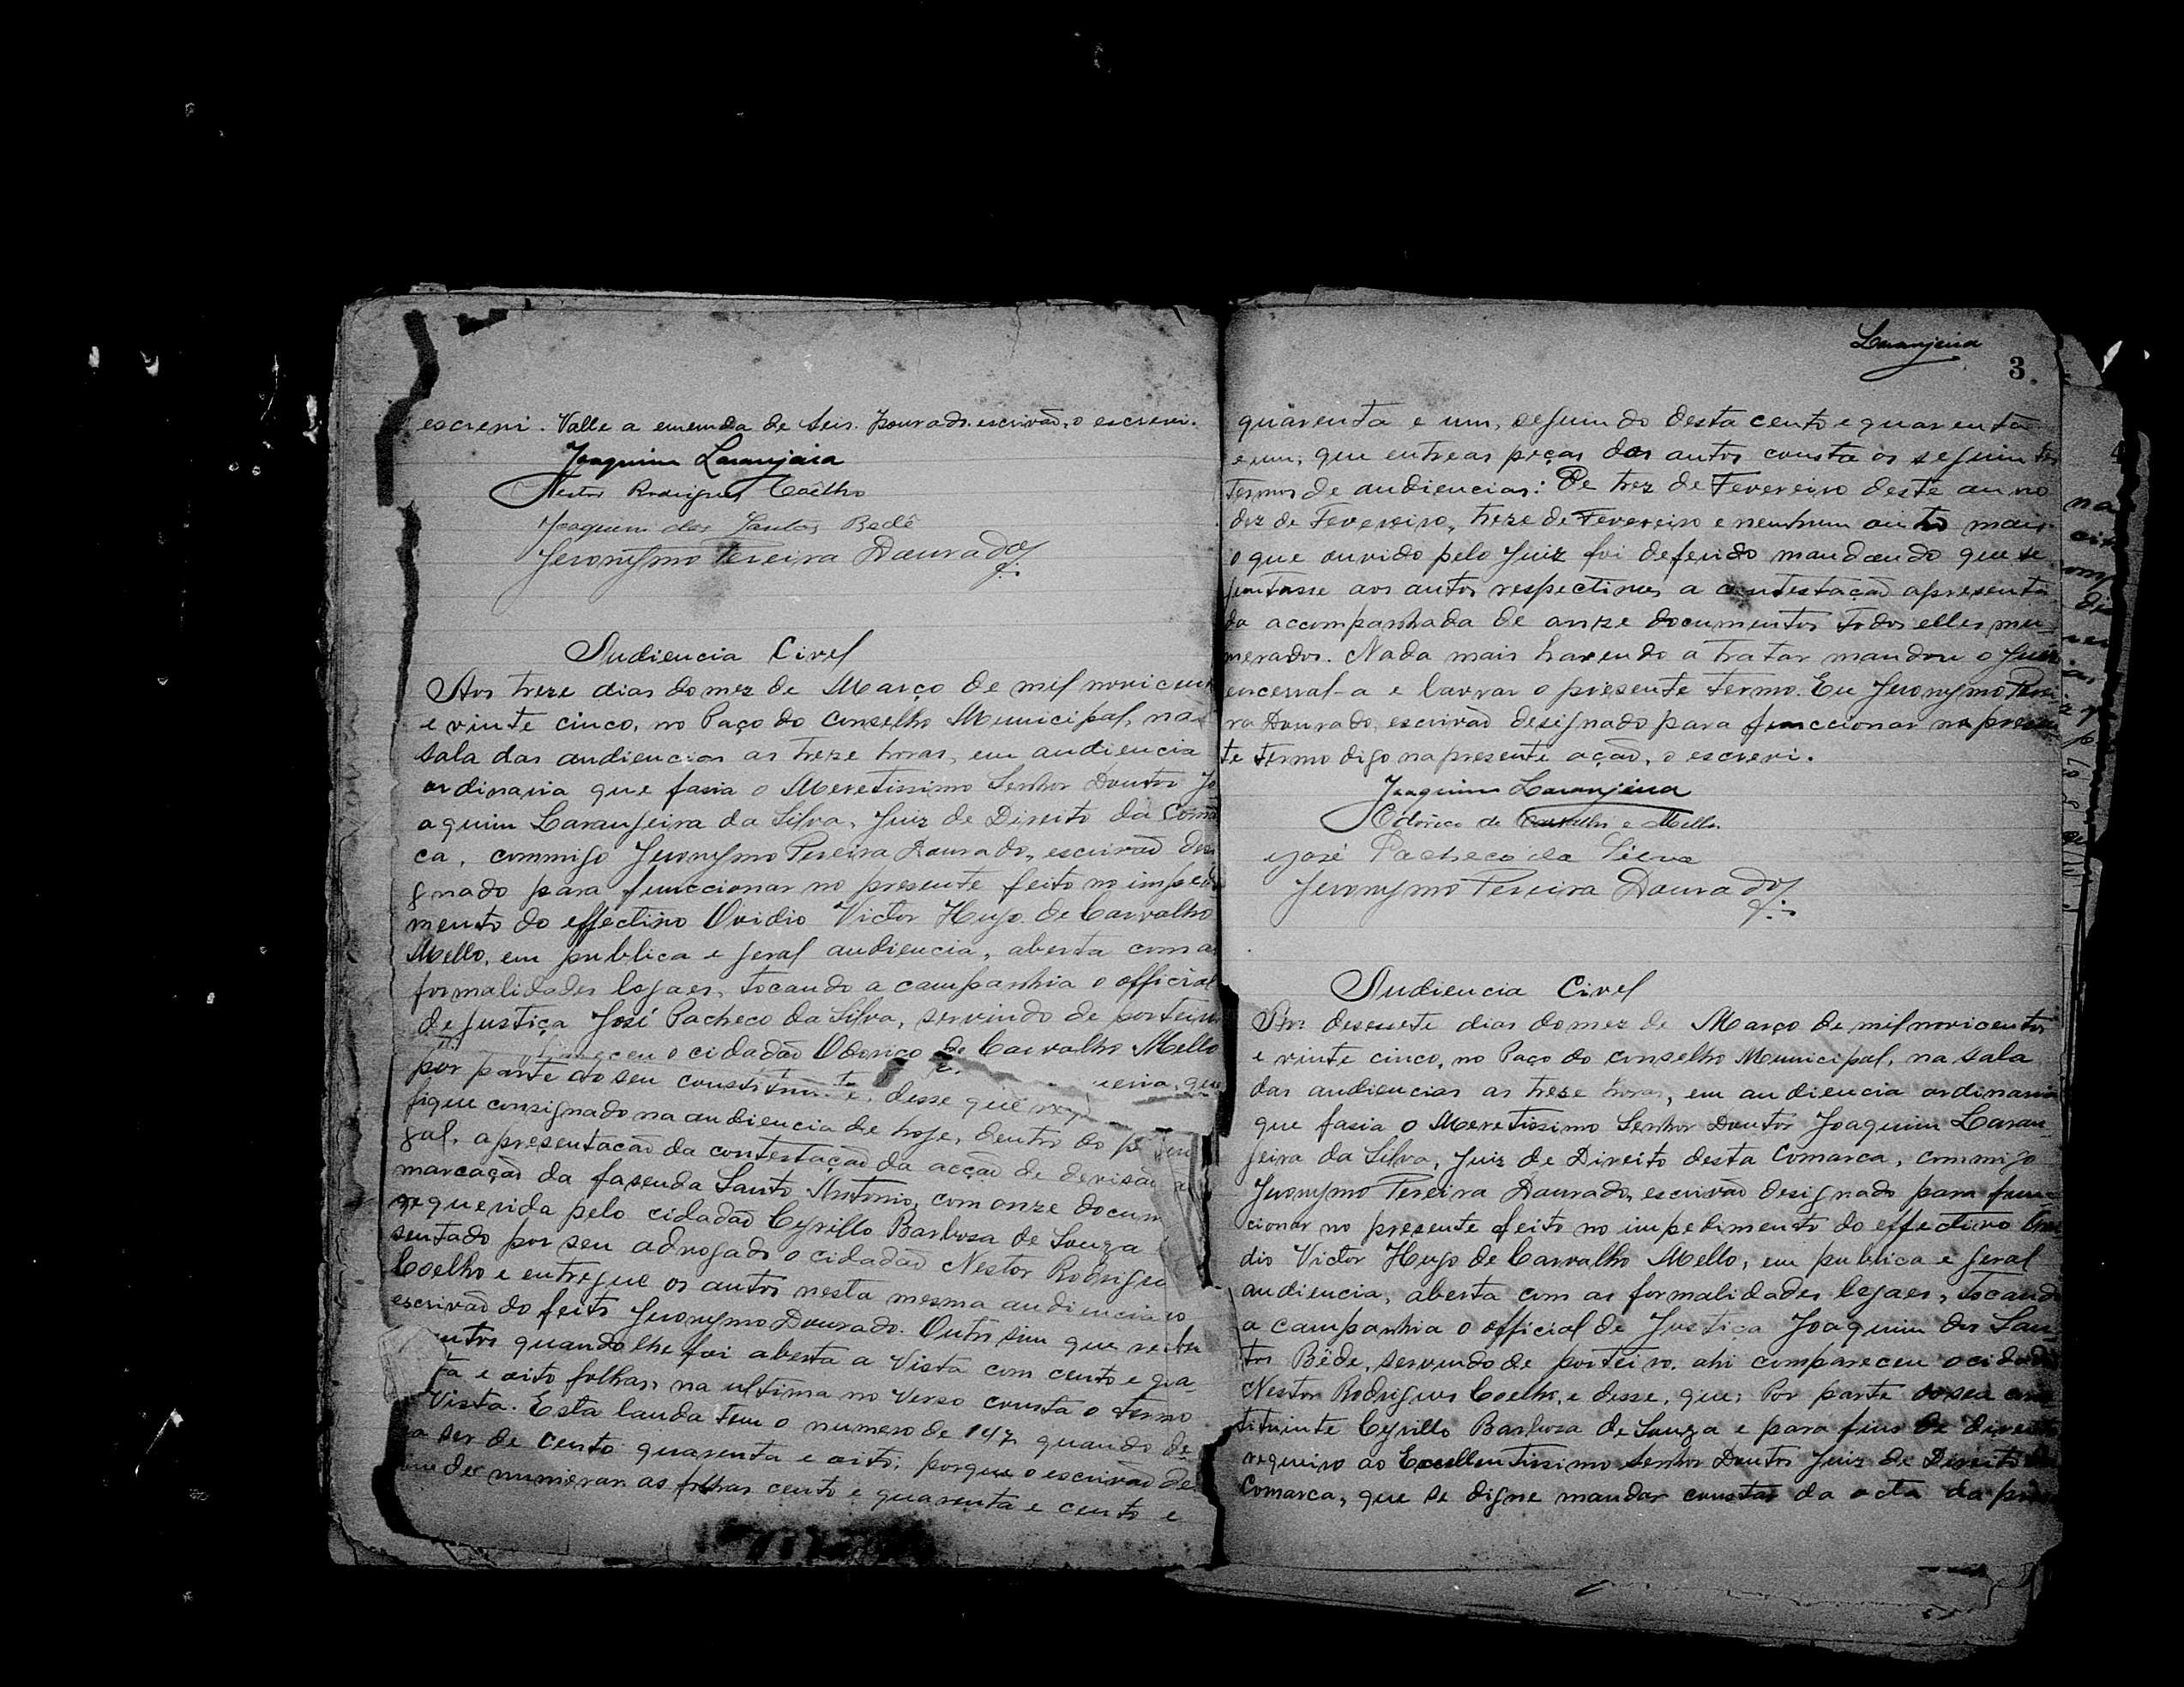 escrevi. Valle a emenda de seis. Dourado. escrivão, o escrevi.
Joaquim Laranjeira
Nestor Rodrigues Coêlho
Joaquim dos Santos Bedê
Jeronymo Pereira Dourado
Audiencia Civel
Aos treze dias do mez de Março de mil novicen
e vinte cinco, no Paço do Conselho Municipal, na
sala das audiencias as treze horas, em audiencia
ordinaria que fasia o Meretissimo Senhor Doutor Jo
aquim Laranjeira da Silva, Juiz de Direito da Comar
ca, commigo Jeronymo Pereira Dourado, escrivão desi
gnado para funccionar no presente feito no impedi
mento do effectivo Ovidio Victor Hugo de Carvalho
Mello, em publica e geral audiencia, aberta com a
formalidades legaes, tocando a campanhia o official
de Justiça José Pacheco da Silva, servindo de porteiro
ceu o cidadão Odorico de Carvalho Mello
por parte do seu constituinte, disse que
fique consignado na audiencia de hoje, dentro do
gal, apresentação da contestação da acção de devisão
marcação da fasenda Santo Antonio, com onze docum
requerida pelo cidadão Cyrillo Barbosa de Souza
sentado por seu advogado o cidadão Nestor Rodrigue
Coelho e entregue os autos nesta mesma audiencia ao
escrivão do feito Jeronymo Dourado. Outro sim que recebeu
autos quando lhe foi aberta a Vista com cento e qua-
ta e oito folhas, na ultima no verso consta o termo
Vista. Esta lauda tem o numero de 147 quando de
a ser de cento quarenta e oito; porque o escrivão de
de numerar as folhas cento e quarenta e cento e
Laranjeira
3
quarenta e um, seguindo desta cento e quarenta
e um; que entre as peças dos autos consta os seguintes
termos de audiencias: De trez de Fevereiro deste anno
dez de Fevereiro, treze de Fevereiro e nenhum outro mais.
o que ouvido pelo Juiz foi deferido mandando que se
juntasse aos autos respectivos a contestação apresenta
da accompanhada de onze documentos todos elles nu-
merados. Nada mais havendo a tratar mandou o Juiz
encerral-a e lavrar o presente termo. Eu Jeronymo Perei
ra Dourado, escrivão designado para funccionar no presen
te termo digo na presente ação, o escrevi.
Joaquim Laranjeira
Odorico de Carvalho e Mello.
José Pacheco da Silva
Jeronymo Pereira Dourado
Audiencia Civel
Aos desesete dias do mez de Março de mil novicentos
e vinte cinco, no Paço do conselho Municipal, na sala
das audiencias as treze horas, em audiencia ordinaria
que fasia o Meretissimo Senhor Doutor Joaquim Laran-
jeira da Silva, Juiz de Direito desta Comarca, commigo
Jeronymo Pereira Dourado, escrivão designado para func-
cionar no presente feito no impedimento do effectivo Ovi
dio Victor Hugo de Carvalho Mello, em publica e geral
audiencia, aberta com as formalidades legaes, tocando
a campanhia o official de Justiça Joaquim dos San-
tos Bêde, servindo de porteiro. ahi compareceu o cidadão
Nestor Rodrigues Coelho, e disse, que; Por parte do seu cons
tituinte Cyrillo Barbosa de Souza e para fins de direito
requeiro ao Excellentissimo Senhor Doutor Juiz de Direito da
Comarca, que se digne mandar constar da acta da pres